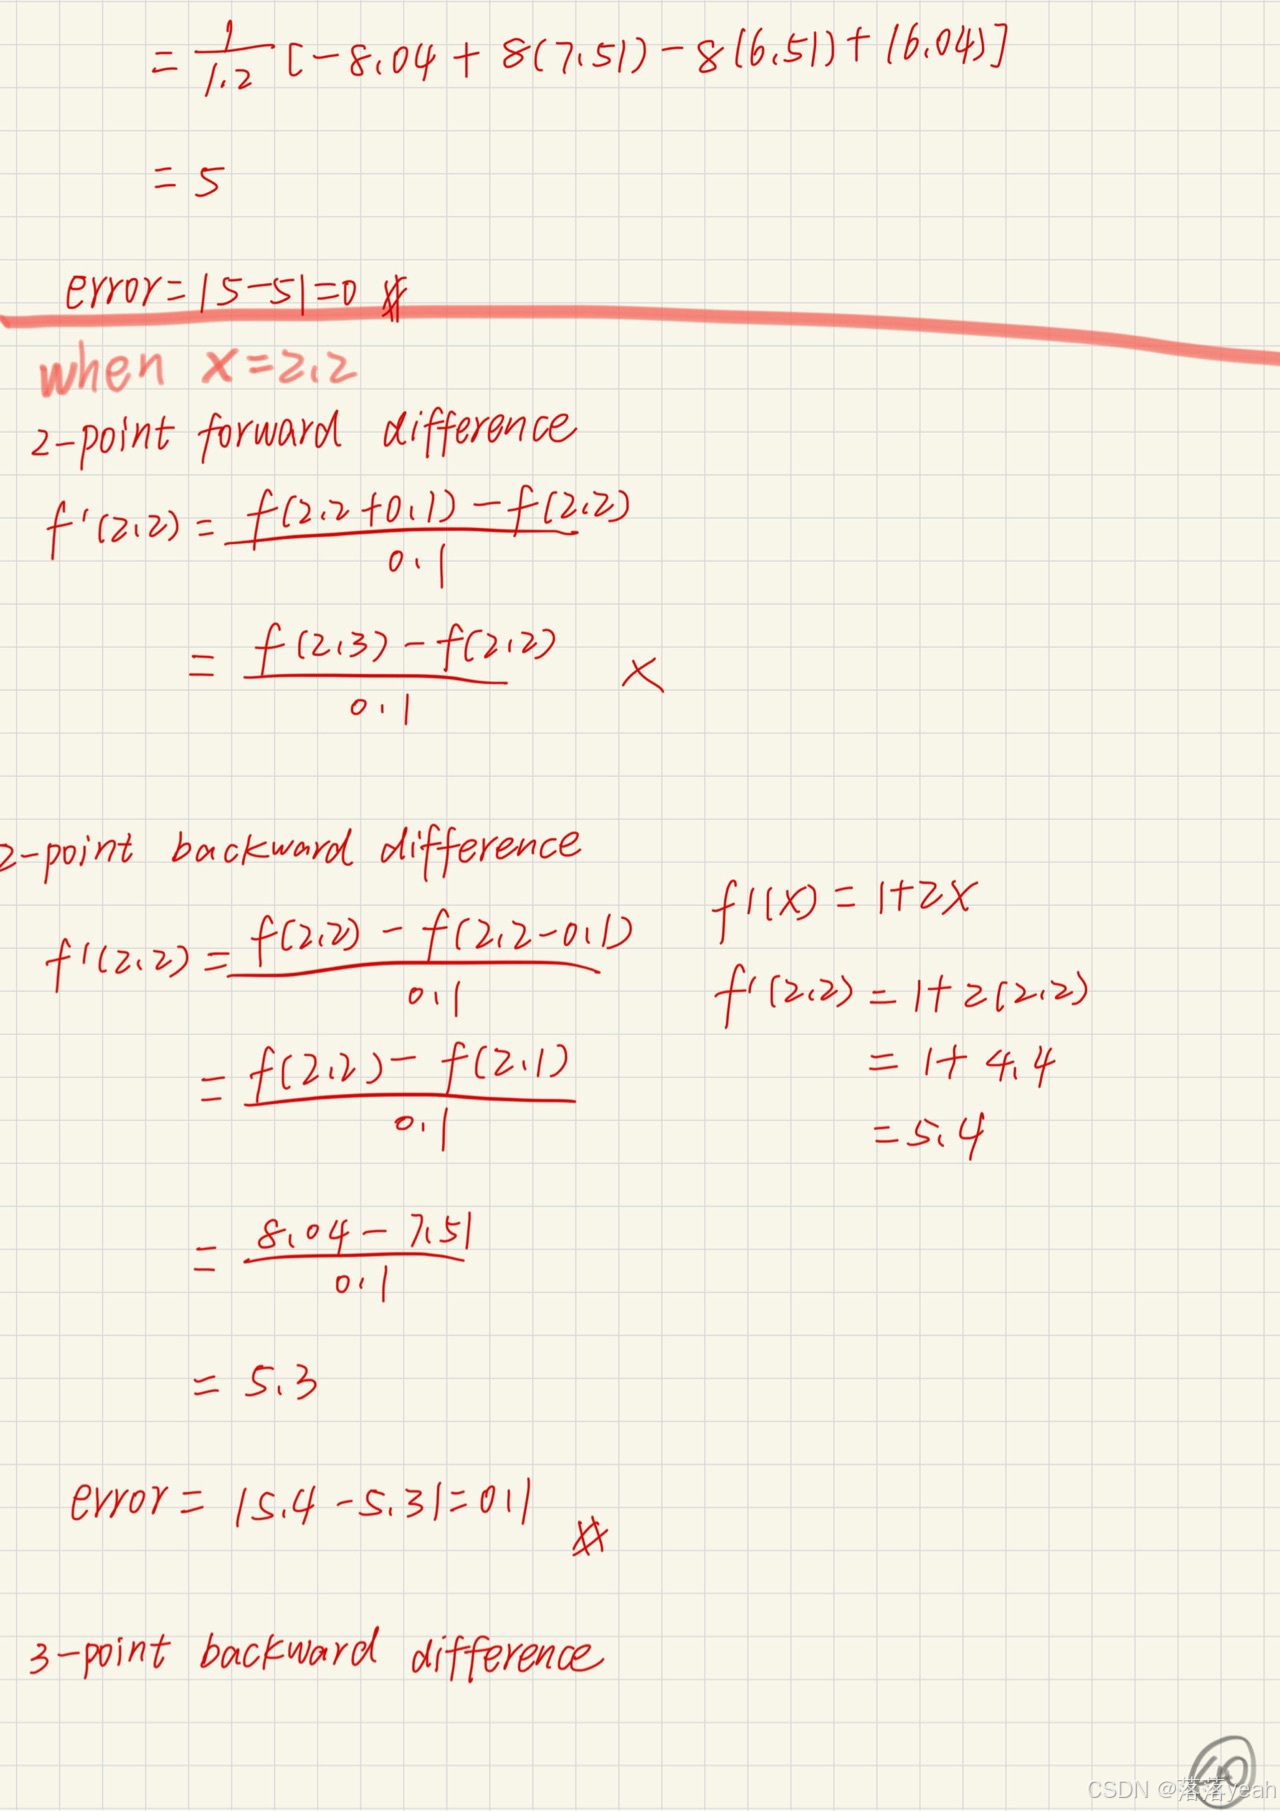 = 1/1.2 [-8.04 + 8(7.51) - 8(6.51) + (6.04)]
= 5
error = |5-5| = 0 #
when x = 2.2
2-point forward difference
f'(2.2) = f(2.2+0.1) - f(2.2) / 0.1
= f(2.3) - f(2.2) / 0.1 ×
2-point backward difference
f'(2.2) = f(2.2) - f(2.2-0.1) / 0.1
= f(2.2) - f(2.1) / 0.1
= 8.04 - 7.51 / 0.1
= 5.3
f'(x) = 1+2x
f'(2.2) = 1+2(2.2)
= 1+4.4
= 5.4
error = |5.4 - 5.3| = 0.1 #
3-point backward difference
CSDN @落落yeah